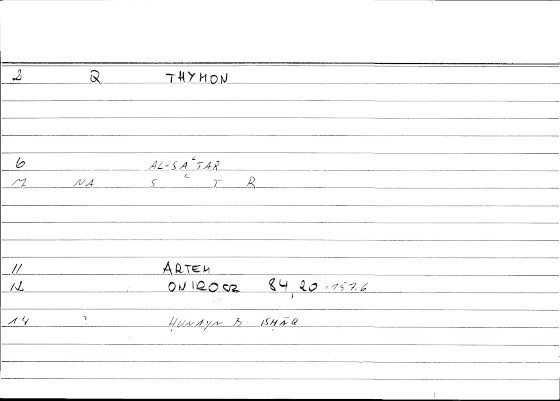 2 Q THYMON
6 AL-SAʿTAR
M NA S ʿ T R
11 ARTEM
12 ONIROCR 84,20 = 157.6
14 ḤUNAYN B ISḤĀQ